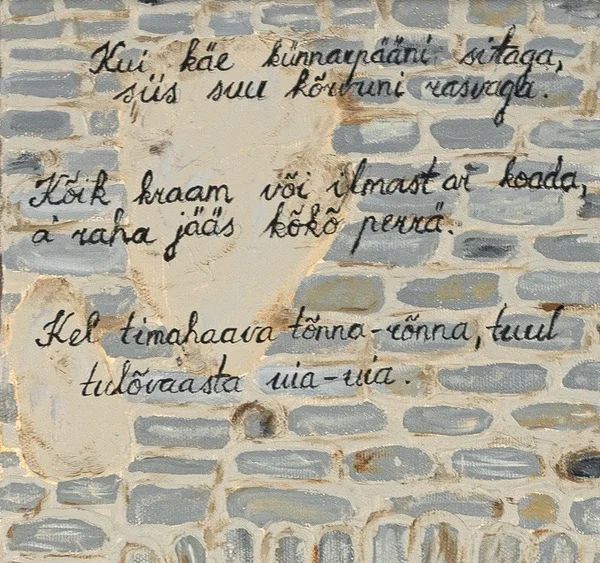 Kui käe künnarpääni sitaga,
siis suu kõrvuni rasvaga.
Kõik kraam või ilmast ar koada,
a raha jääs kõkõ perrä.
Kel timahaava tõnna-rõnna, tuul
tulõvaasta uia-uia.